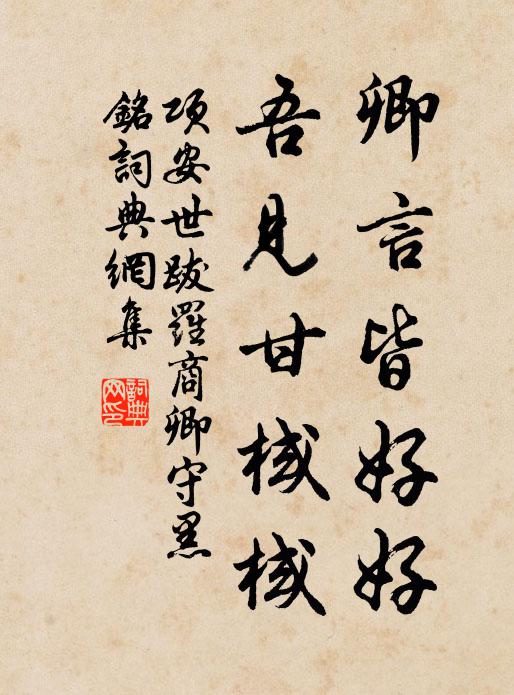 卿言皆好好
吾見甘棫棫
項安世跋羅商卿守黑
銘詞典網集
詞典
网印